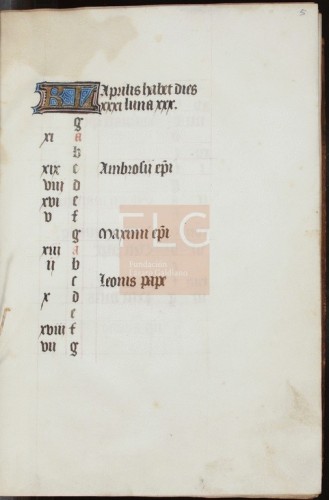 5
KL Aprilis habet dies
xxxi luna xxx.
g
xi a
b
xix c Ambrosii epi
viii d
xvi e
v f
g Maximi epi
xiii a
ii b
c Leonis pape
x d
e
xviii f
vii g
FLG
Fundación
Lázaro Galdiano